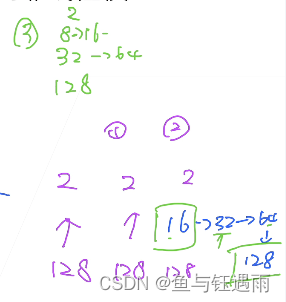 2
③ 8->16-
32 ->64
128
① ②
2 2 2
↑ ↑ 16->32->64
↑ ↓
128 128 128 128
CSDN @鱼与钰遇雨